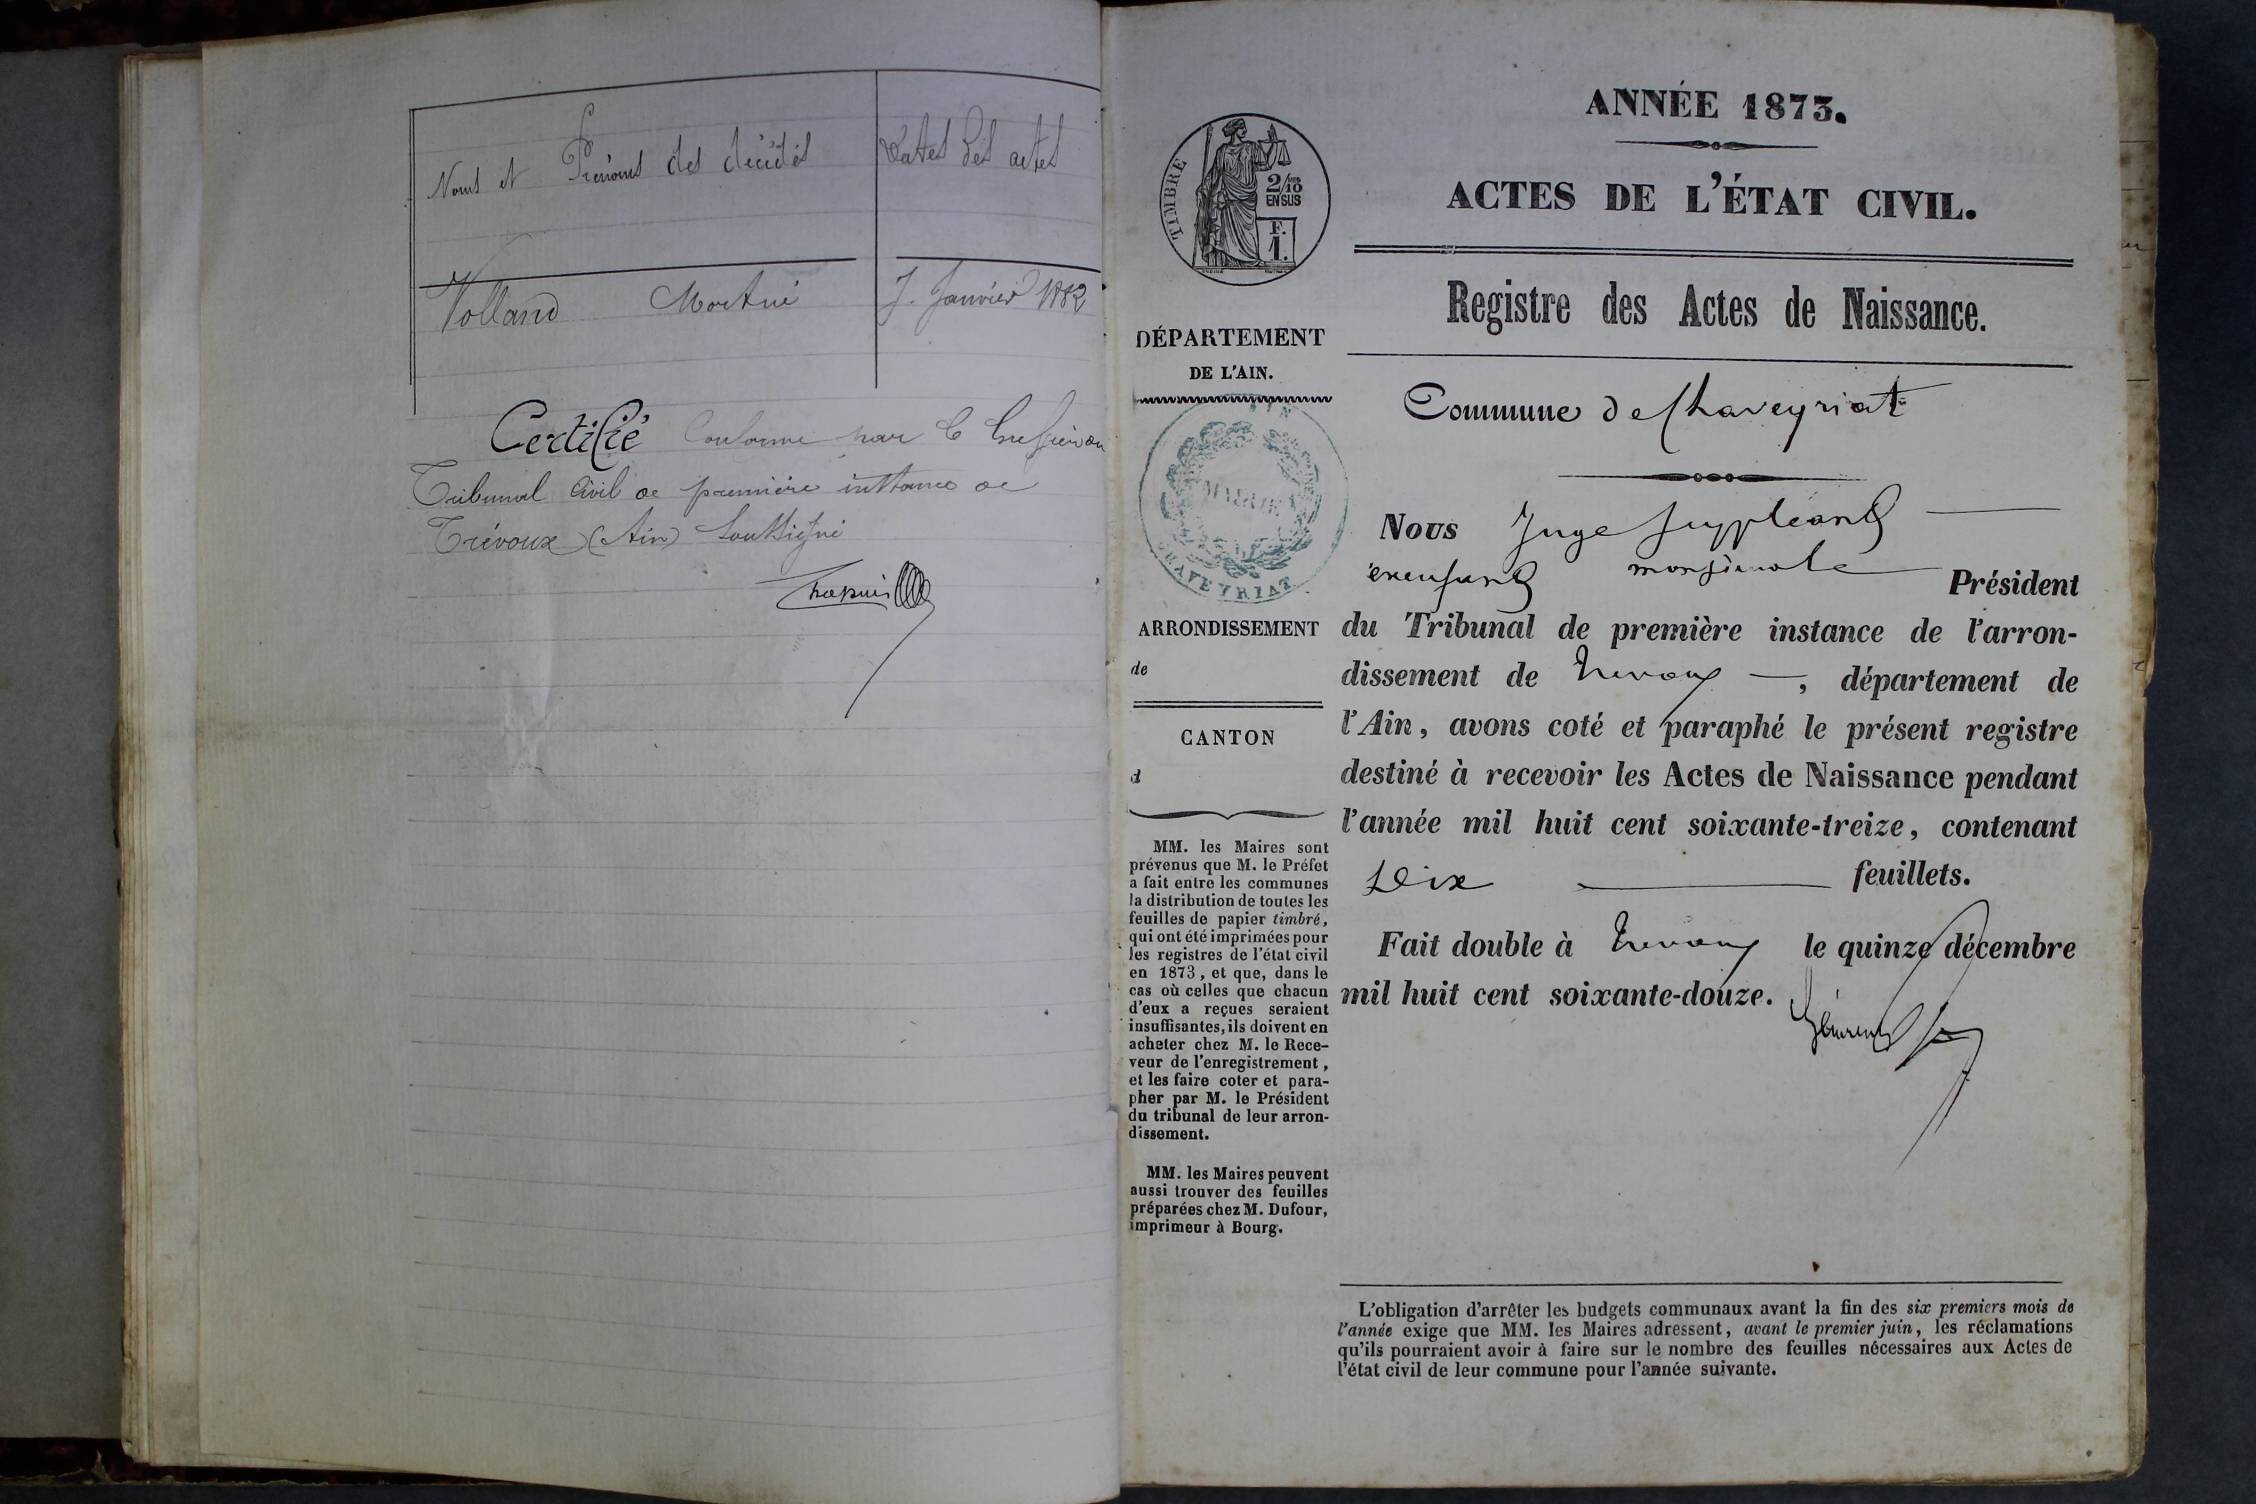 Noms et Prénoms des décédés
Dates des actes
Volland Mort né
7. Janvier 1882
Certifié Conforme par le Greffier du
Tribunal Civil de première instance de
Trévoux (Ain) Soussigné
ANNÉE 1873.
ACTES DE L'ÉTAT CIVIL.
Registre des Actes de Naissance.
TIMBRE
2/10
EN SUS
F.
1.
DÉPARTEMENT
DE L'AIN.
MAIRIE
CHAVEYRIAT
ARRONDISSEMENT
de
CANTON
d
MM. les Maires sont
prévenus que M. le Préfet
a fait entre les communes
la distribution de toutes les
feuilles de papier timbré,
qui ont été imprimées pour
les registres de l'état civil
en 1873, et que, dans le
cas où celles que chacun
d'eux a reçues seraient
insuffisantes, ils doivent en
acheter chez M. le Rece-
veur de l'enregistrement,
et les faire coter et para-
pher par M. le Président
du tribunal de leur arron-
dissement.
MM. les Maires peuvent
aussi trouver des feuilles
préparées chez M. Dufour,
imprimeur à Bourg.
Commune de Chaveyriat
Nous Juge Suppléant
Président
du Tribunal de première instance de l'arron-
dissement de Trevoux, département de
l'Ain, avons coté et paraphé le présent registre
destiné à recevoir les Actes de Naissance pendant
l'année mil huit cent soixante-treize, contenant
Dix feuillets.
Fait double à Trevoux le quinze décembre
mil huit cent soixante-douze.
L'obligation d'arrêter les budgets communaux avant la fin des six premiers mois de
l'année exige que MM. les Maires adressent, avant le premier juin, les réclamations
qu'ils pourraient avoir à faire sur le nombre des feuilles nécessaires aux Actes de
l'état civil de leur commune pour l'année suivante.